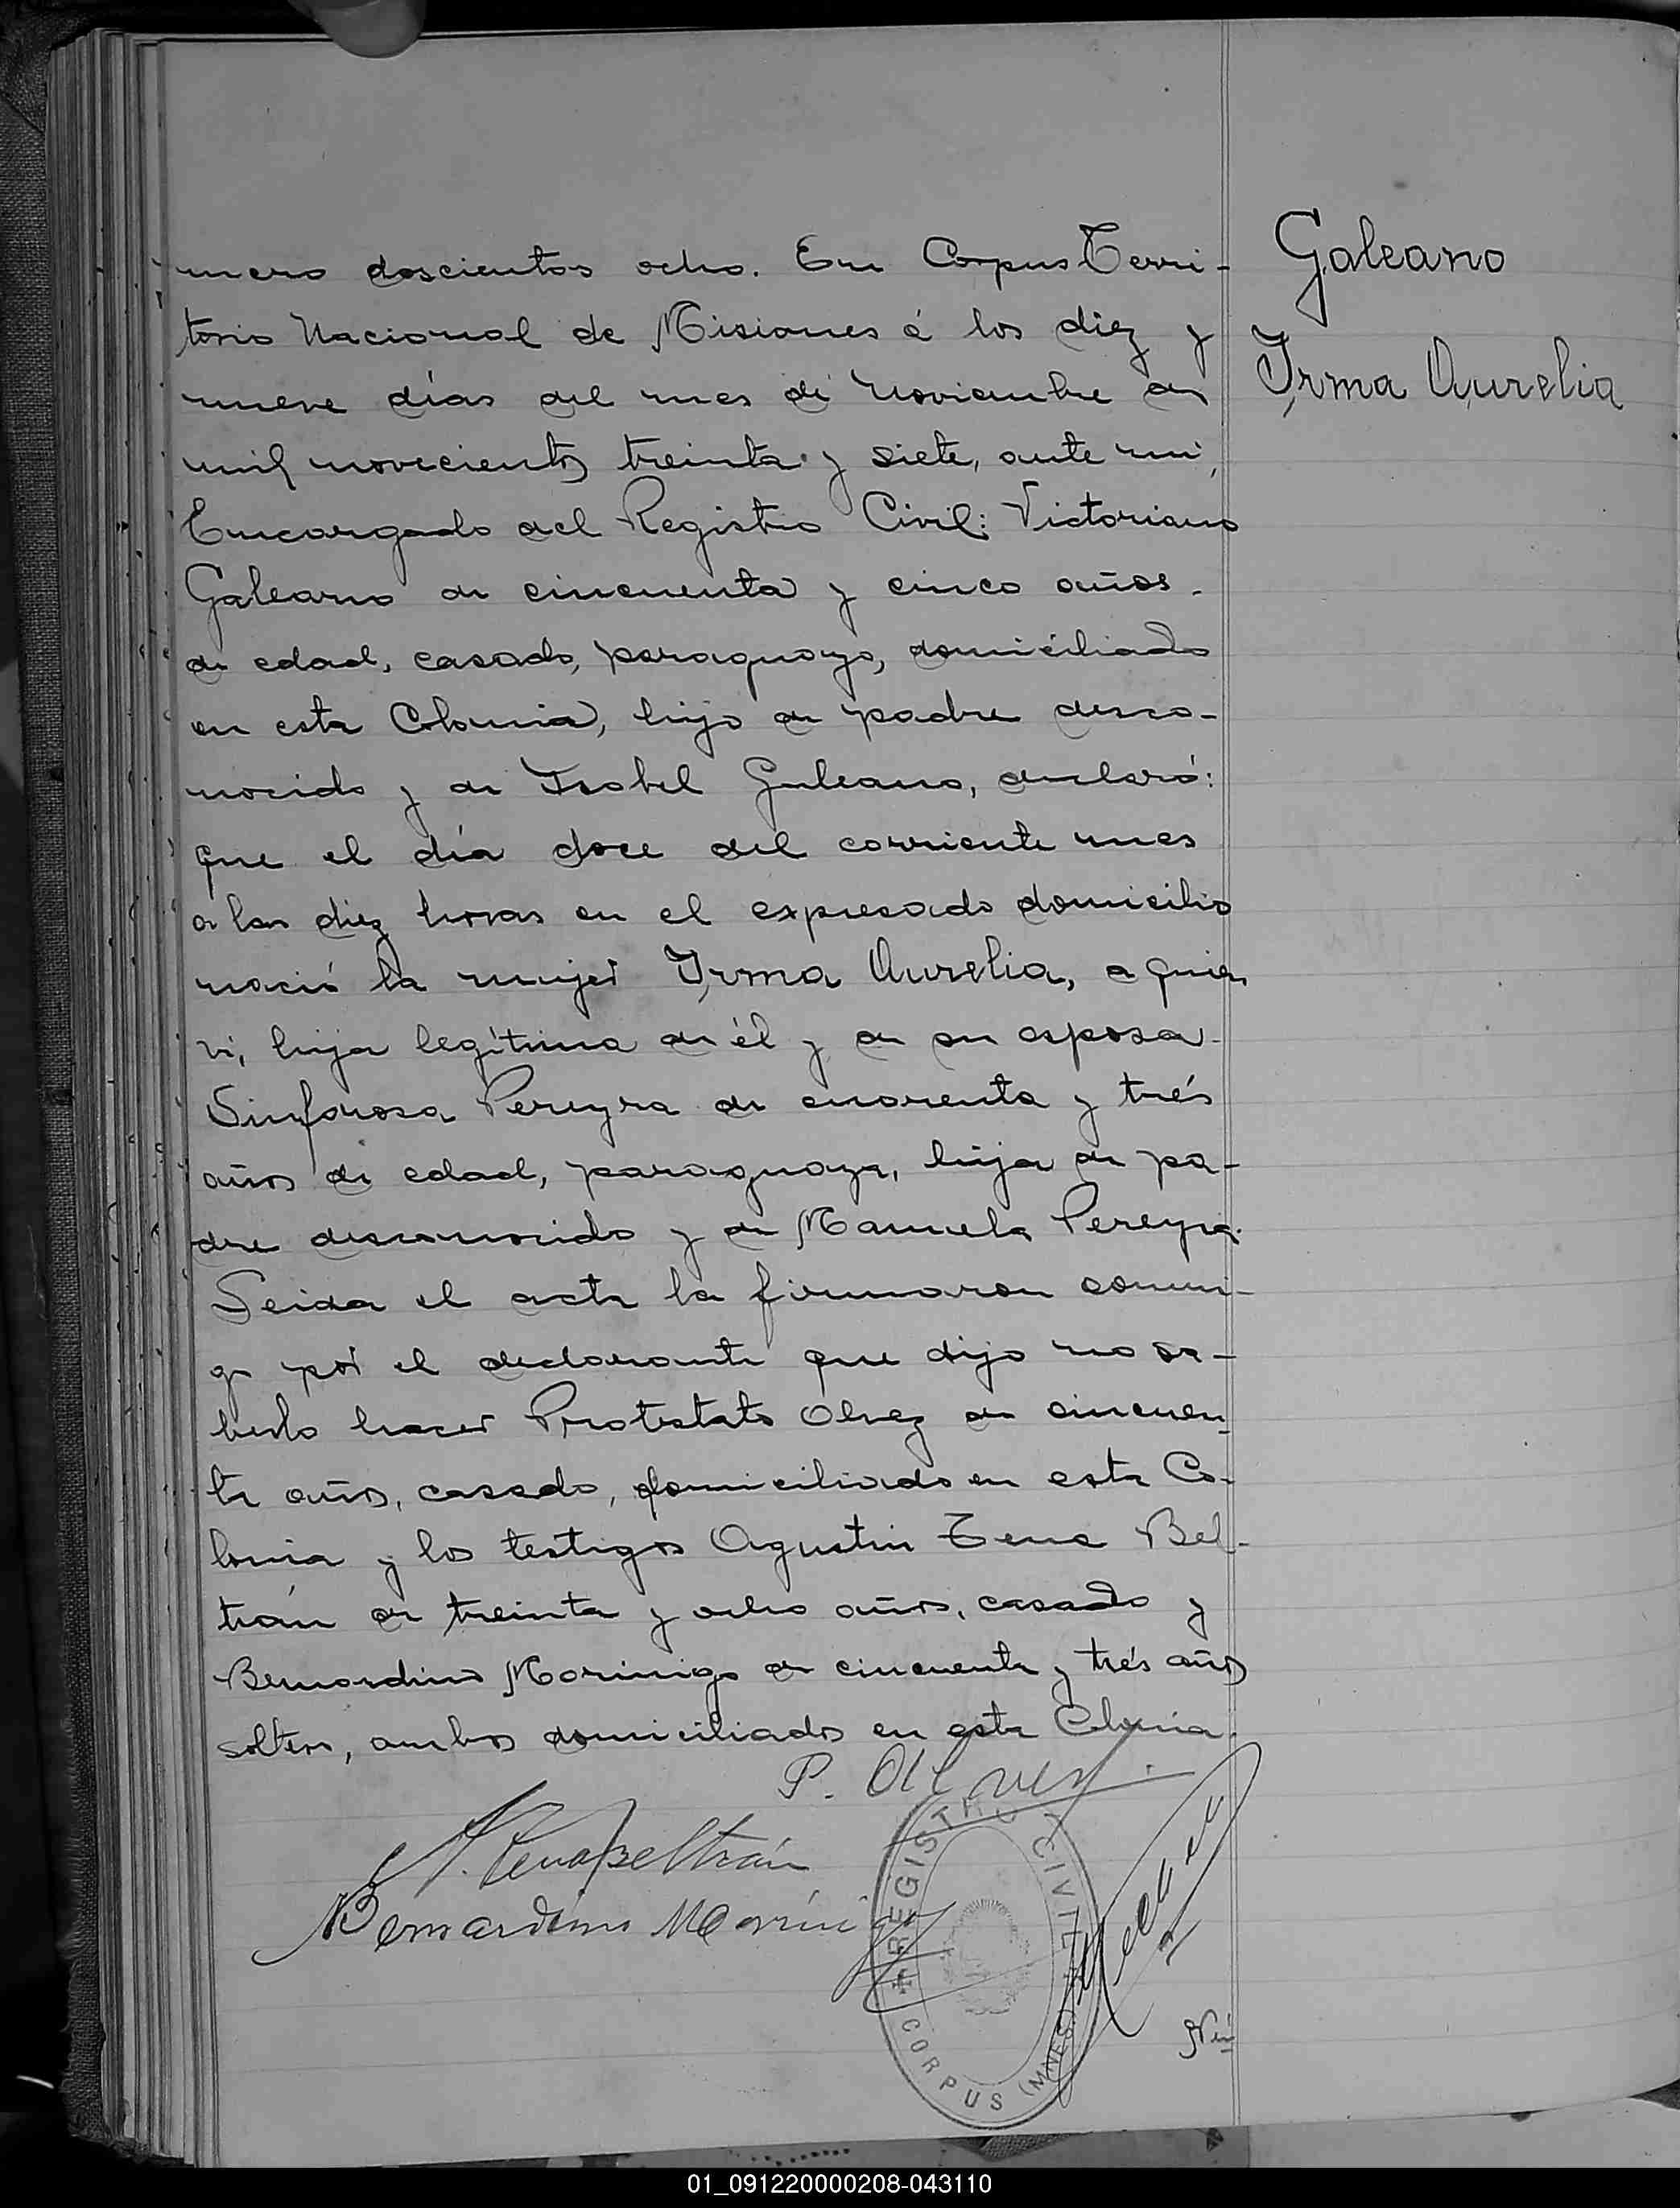 mero doscientos ocho. En Corpus Terri-
torio Nacional de Misiones á los diez y
nueve días del mes de Noviembre de
mil novecientos treinta y siete, ante mi,
Encargado del Registro Civil: Victoriano
Galeano de cincuenta y cinco años
de edad, casado, paraguayo, domiciliado
en esta Colonia, hijo de padre desco-
nocido y de Isabel Galeano, declaró:
que el día doce del corriente mes
a las diez horas en el expresado domicilio
nació la mujer Irma Aurelia, a quien
vi, hija legítima de él y de su esposa
Sinforosa Pereyra de cuarenta y trés
años de edad, paraguaya, hija de pa-
dre desconocido y de Manuela Pereyra.
Leida el acta la firmaron conmi-
go por el declarante que dijo no sa-
berlo hacer Protestato Olvez de cincuen-
ta años, casado, domiciliado en esta Co-
lonia y los testigos Agustin Tena Bel-
trán de treinta y ocho años, casado y
Bernardino Morinigo de cincuenta y trés años
soltero, ambos domiciliados en esta Colonia.
Galeano
Irma Aurelia
P.
A. Tena Beltrán
Bernardino Morínigo
REGISTRO CIVIL
CORPUS (MNES.)
01_091220000208-043110